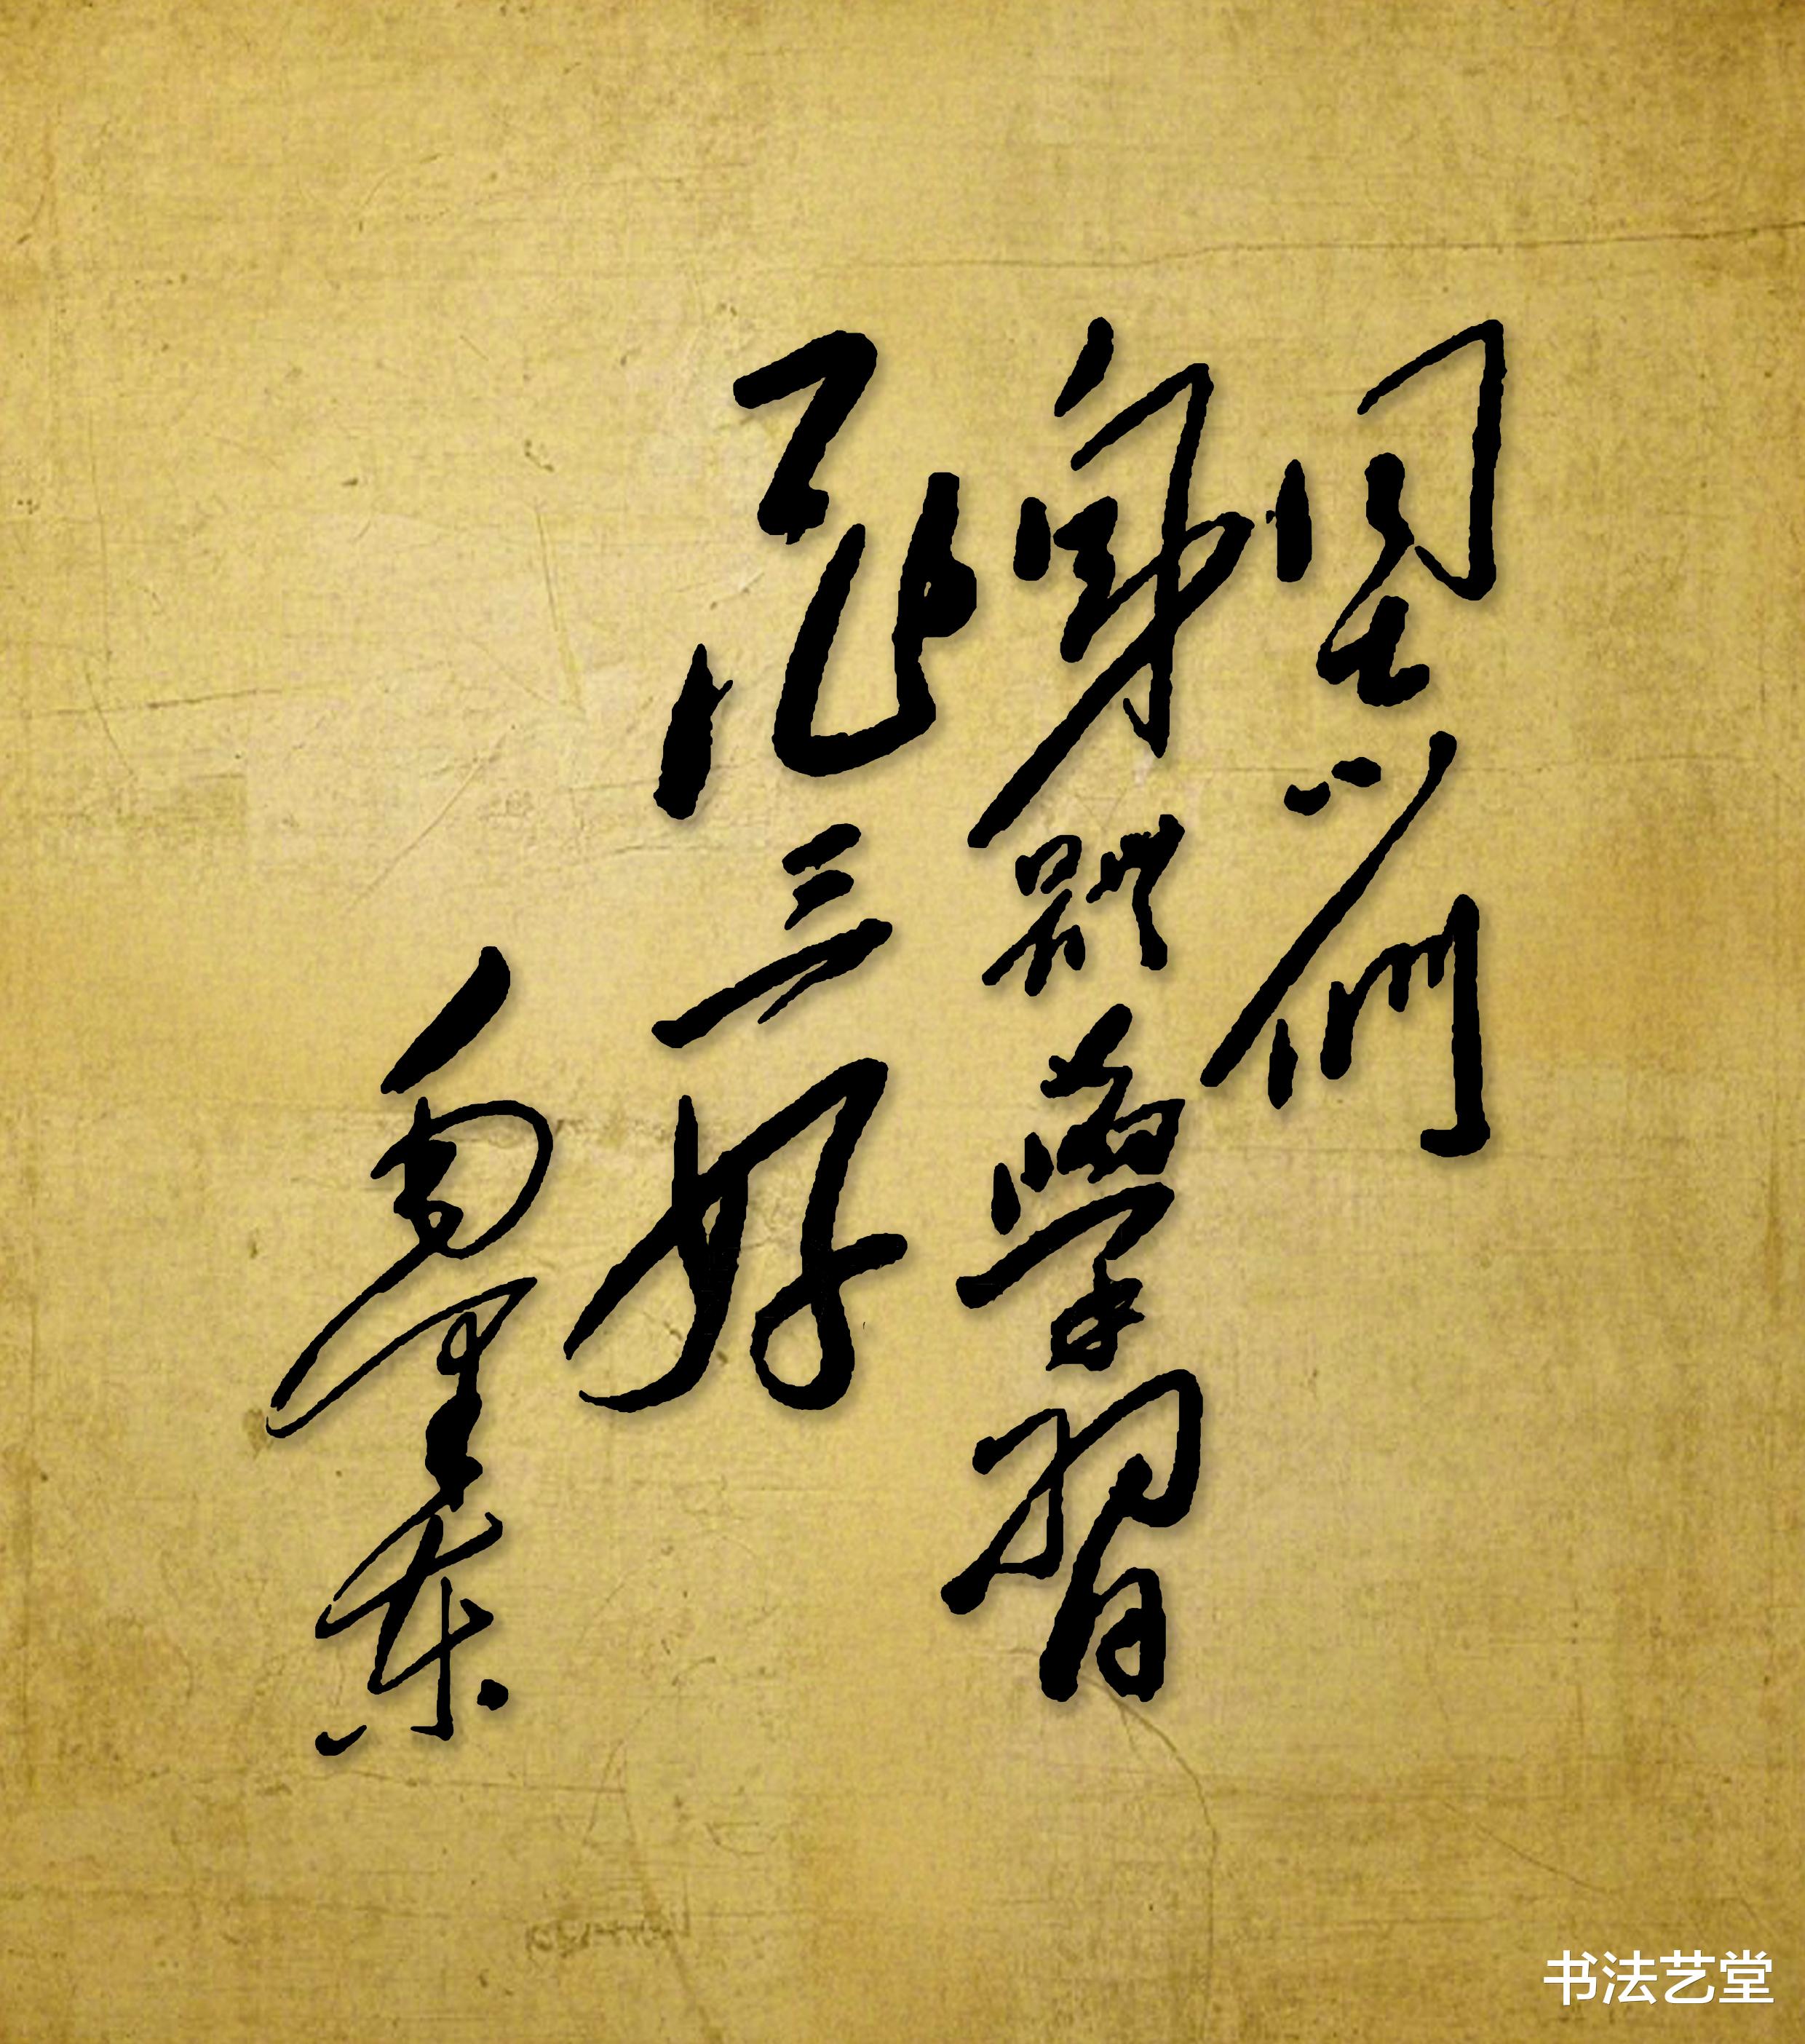 同志們
身體學習
工作三好
毛澤東
书法艺堂